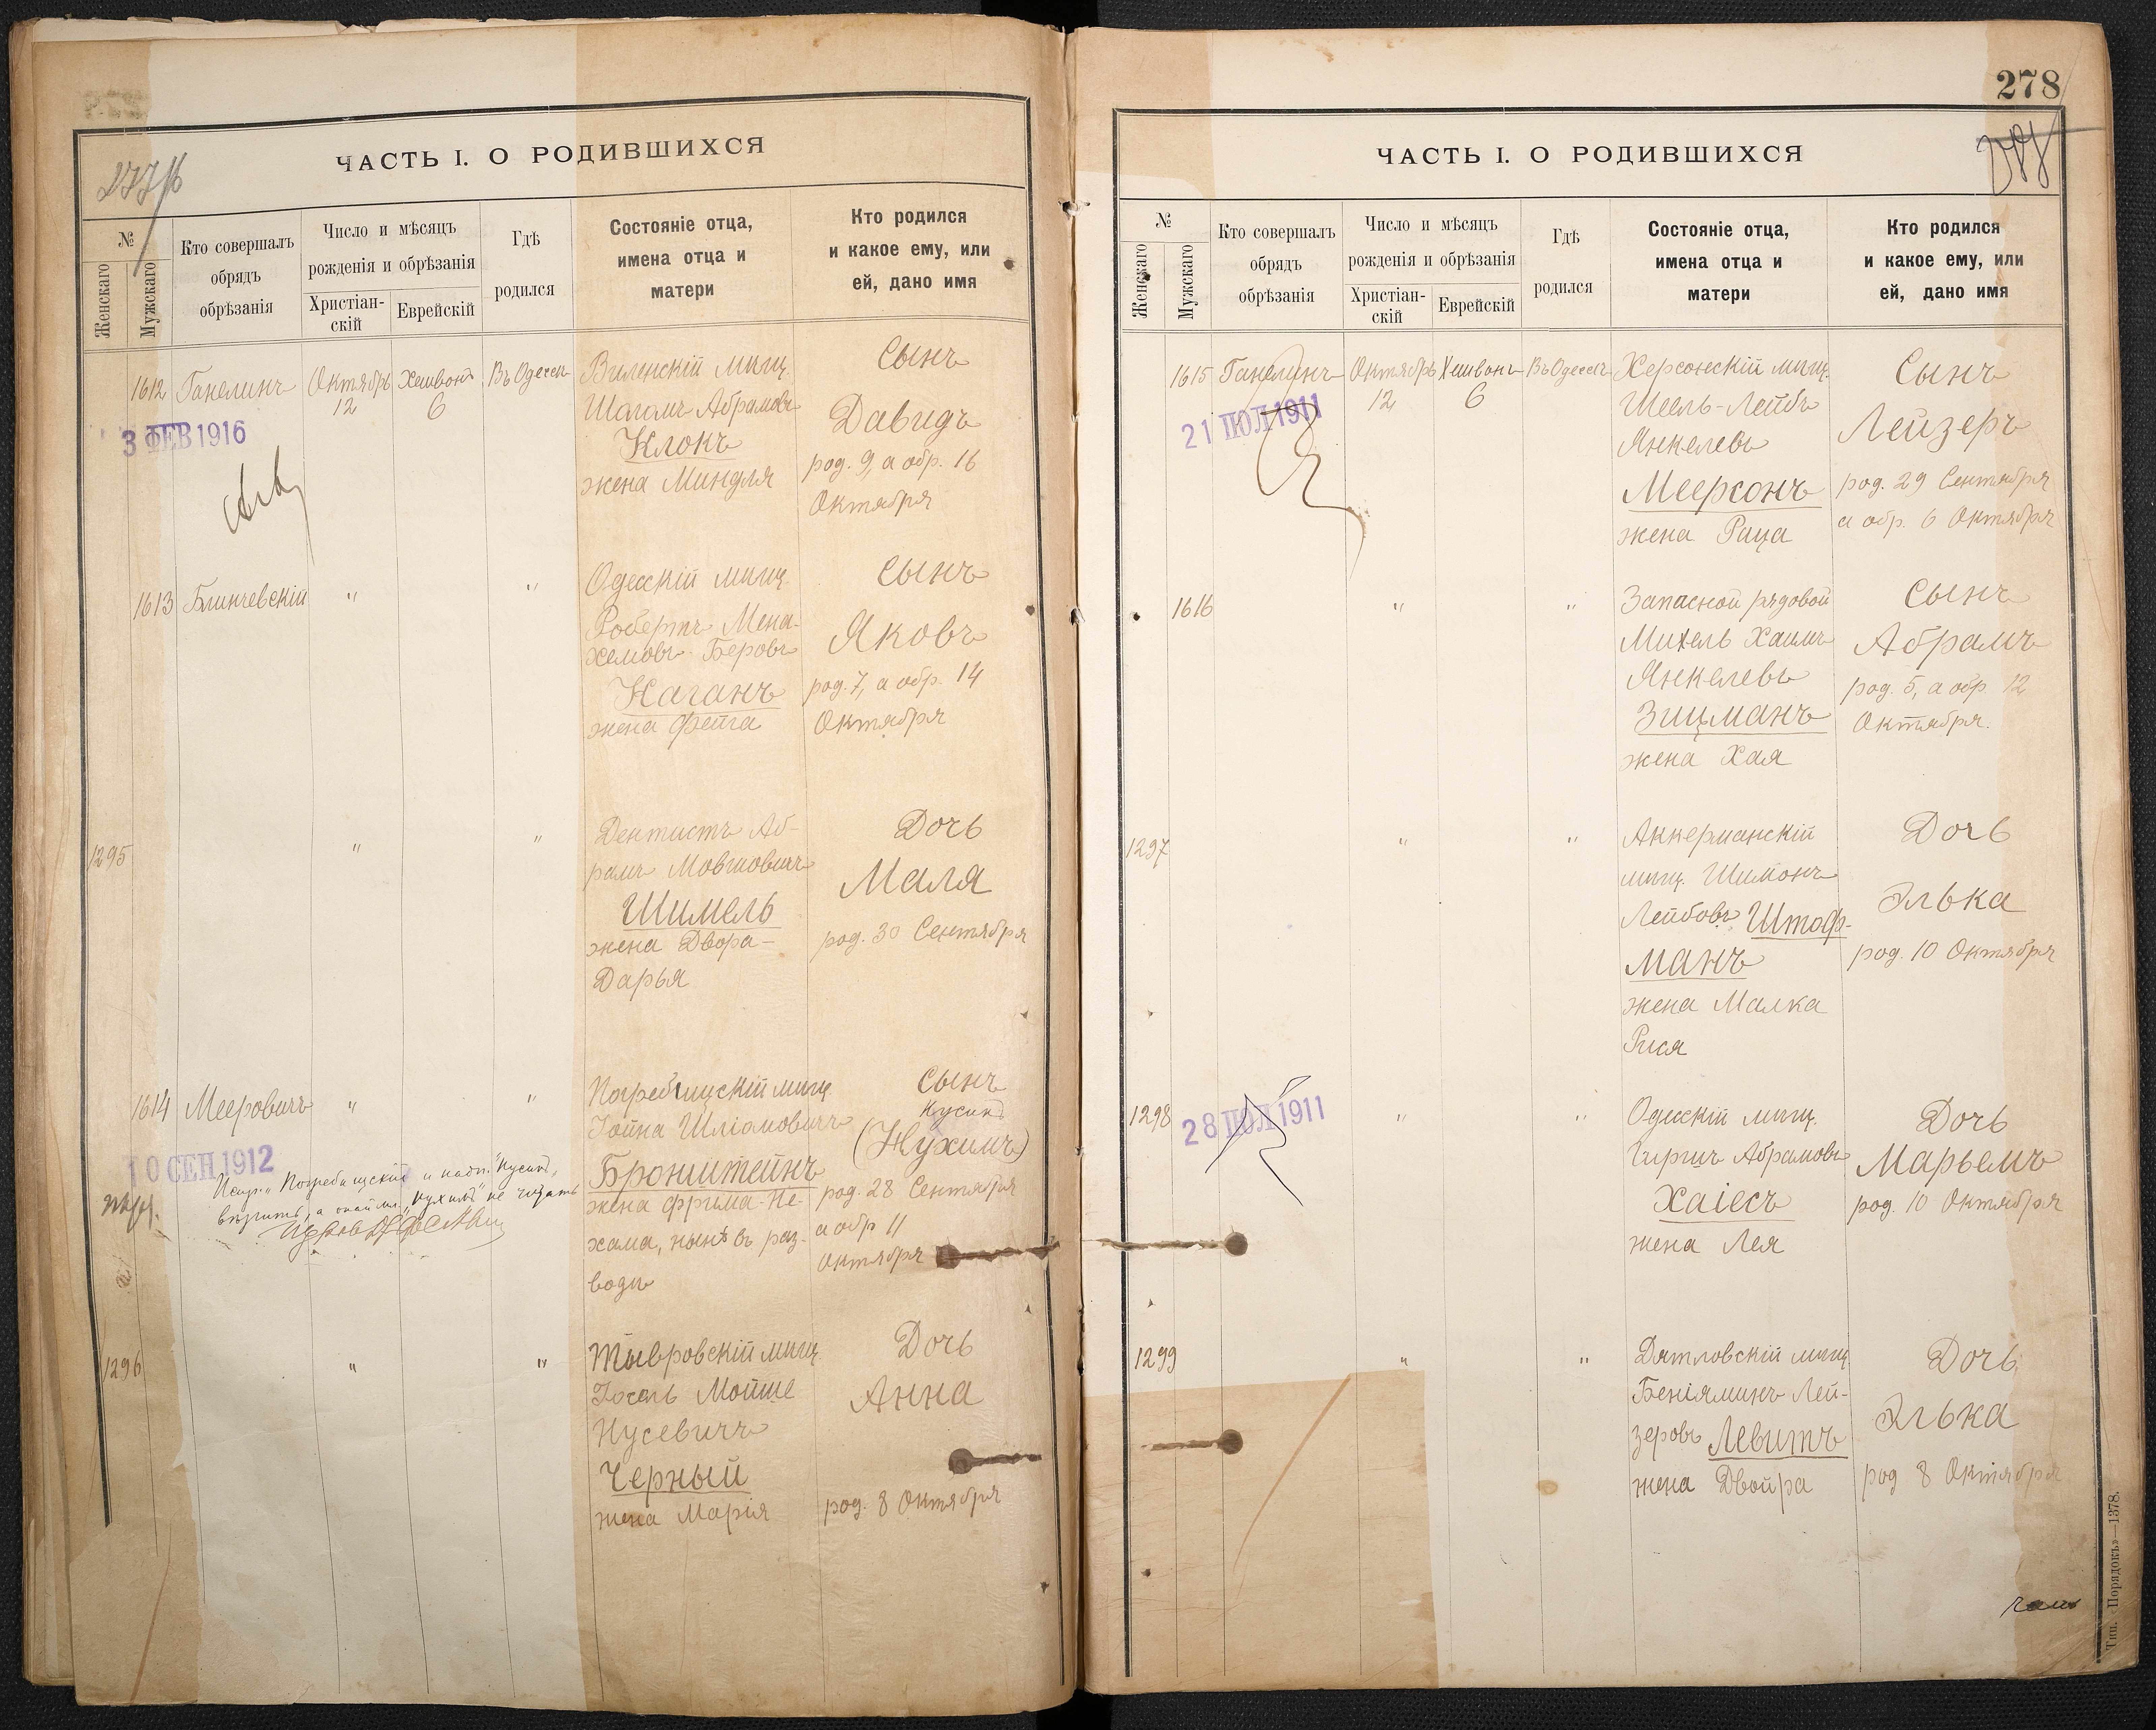 ЧАСТЬ I. О РОДИВШИХСЯ
№
Женскаго
Мужскаго
Кто совершалъ
обрядъ
обрѣзанія
Число и мѣсяцъ
рожденія и обрѣзанія
Христіан-
скій
Еврейскій
Гдѣ
родился
Состояніе отца,
имена отца и
матери
Кто родился
и какое ему, или
ей, дано имя
1612
Ганелинъ
Октябрь
12
Хешвонъ
6
Въ Одессѣ
Виленскій мѣщ.
Абрамовъ
Клокъ
жена Миндля
Сынъ
Давидъ
род. 9, а обр. 16
Октября
3 ФЕВ 1916
1613
Блинчевскій
"
"
Одесскій мѣщ.
Робертъ Мена-
хемовъ-Беровъ
Каганъ
жена Фейга
Сынъ
Яковъ
род. 7, а обр. 14
Октября
1295
"
"
Дентистъ Аб-
рамъ Мовшовичъ
Шимель
жена Двора-
Дарья
Дочь
Маля
род. 30 Сентября
1614
Мееровичъ
"
"
Погребищскій мѣщ.
Іойна Шліомовичъ
Бронштейнъ
жена Фрима-Не-
хама, нынѣ въ раз-
водѣ
Сынъ
Кусиел
(Нухимъ)
род. 28 Сентября
а обр 11
Октября
10 СЕН 1912
1296
"
"
Тывровскій мѣщ.
Іосель Мойше
Нусевичъ
Черный
жена Марія
Дочь
Анна
род. 8 Октября
278
ЧАСТЬ I. О РОДИВШИХСЯ
№
Женскаго
Мужскаго
Кто совершалъ
обрядъ
обрѣзанія
Число и мѣсяцъ
рожденія и обрѣзанія
Христіан-
скій
Еврейскій
Гдѣ
родился
Состояніе отца,
имена отца и
матери
Кто родился
и какое ему, или
ей, дано имя
1615
Ганелинъ
Октябрь
12
Хешвонъ
6
Въ Одессѣ
Херсонскій мѣщ.
Шеель-Лейбъ
Янкелевъ
Меерсонъ
жена Раца
Сынъ
Лейзеръ
род. 29 Сентября
а обр. 6 Октября
21 ІЮЛ 1911
1616
"
"
Запасной рядовой
Михель Хаимъ
Янкелевъ
Зицманъ
жена Хая
Сынъ
Абрамъ
род. 5, а обр 12
Октября.
1297
"
"
Аккерманскій
мѣщ. Шимонъ
Лейбовъ Штоф-
манъ
жена Малка
Рися
Дочь
Элька
род. 10 Октября
1298
"
"
Одесскій мѣщ.
Гиршъ Абрамовъ
Хаіесъ
жена Лея
Дочь
Марьемъ
род. 10 Октября
28 ІЮЛ 1911
1299
"
"
Дятловскій мѣщ
Беніяминъ Лей-
зеровъ Левитъ
жена Двойра
Дочь
Элька
род 8 Октября
Тип. «Порядокъ»—1378.